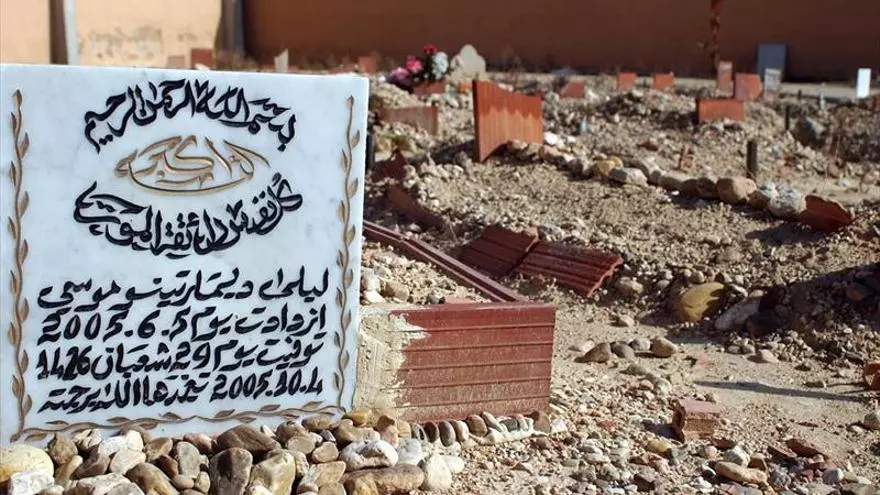 بسم الله الرحمن الرحيم
الله اكبر
كل نفس ذائقة الموت
ليلى ديمارتينو موسى
ازدادت يوم 2005.6.5
توفيت يوم 29 شعبان 1426
2005.10.4 تغمدها الله برحمته